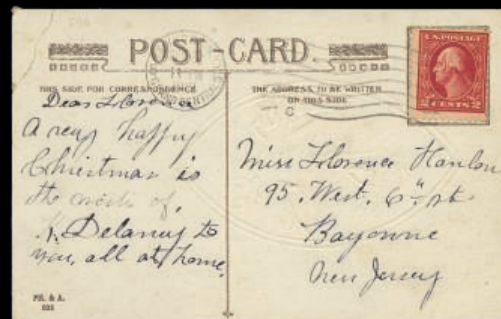 POST-CARD.
THIS SIDE FOR CORRESPONDENCE
THE ADDRESS TO BE WRITTEN
ON THIS SIDE
U.S. POSTAGE
2 CENTS 2
Dear Florence
A very happy
Christmas is
the wish of
Delaney to
you, all at home.
Miss Florence Hanlon
95. West. 6" st
Bayonne
New Jersey